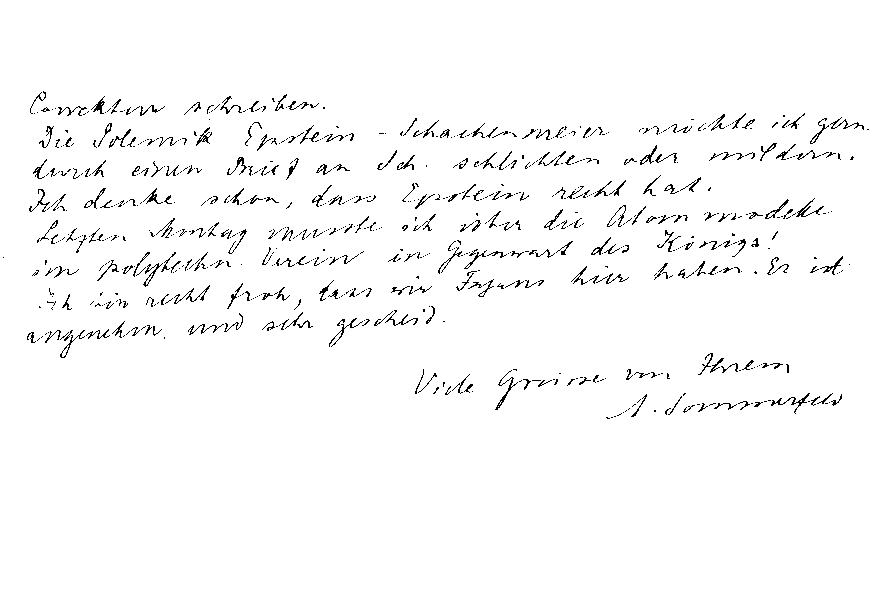 Correktur schreiben.
Die Polemik Epstein - Schachenmeier möchte ich gern
durch einen Brief an Sch. schlichten oder mildern.
Ich denke schon, dass Epstein recht hat.
Letzten Montag musste ich über die Atommodelle
im polytechn. Verein in Gegenwart des Königs!
Ich bin recht froh, dass wir Fajans hier haben. Er ist
angenehm und sehr gescheid.
Viele Grüsse von Ihrem
A. Sommerfeld